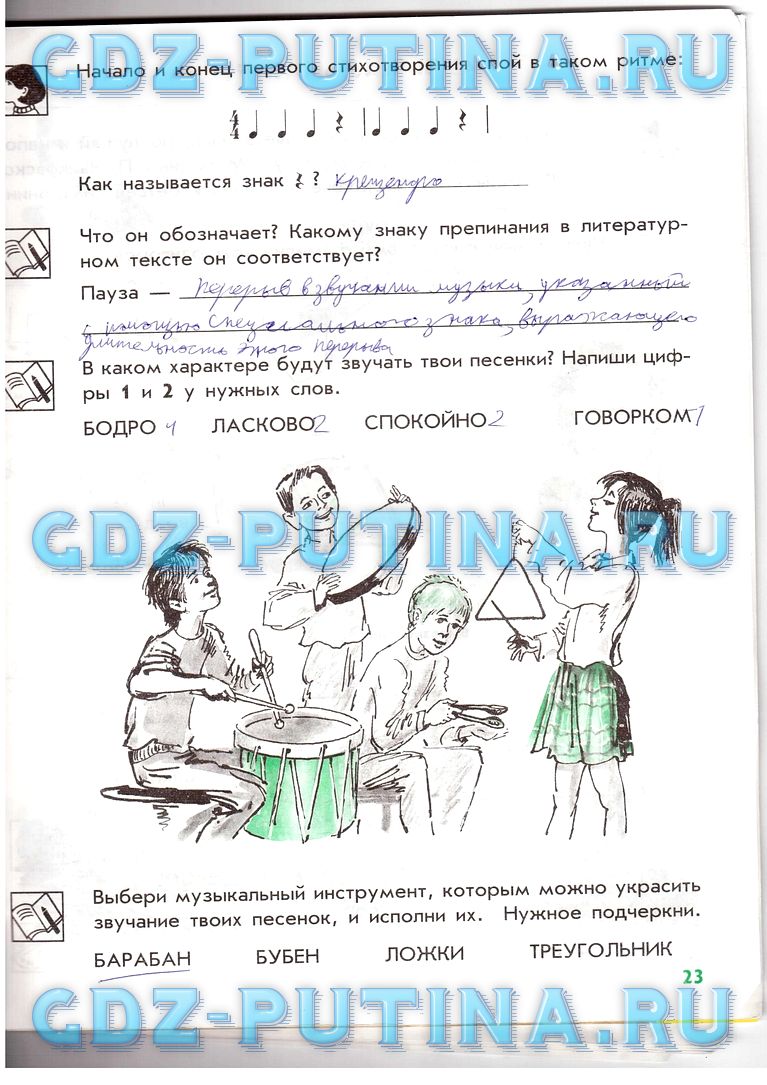 GDZ-PUTINA.RU
Начало и конец первого стихотворения спой в таком ритме:
4
4
Как называется знак ? крещендро
Что он обозначает? Какому знаку препинания в литератур-
ном тексте он соответствует?
Пауза — перерыв в звучании музыки, указанный
с помощью специального знака, выражающего
длительность этого перерыва
В каком характере будут звучать твои песенки? Напиши циф-
ры 1 и 2 у нужных слов.
БОДРО 1 ЛАСКОВО 2 СПОКОЙНО 2 ГОВОРКОМ 1
GDZ-PUTINA.RU
Выбери музыкальный инструмент, которым можно украсить
звучание твоих песенок, и исполни их. Нужное подчеркни.
БАРАБАН БУБЕН ЛОЖКИ ТРЕУГОЛЬНИК
23
GDZ-PUTINA.RU